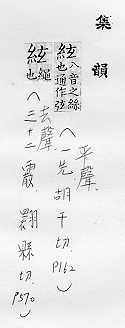 集韻
絃 八音之絲也通作弦 平聲(一先 胡千切.P162)
絃 繩也 去聲(三十二霰 翾縣切.P570)